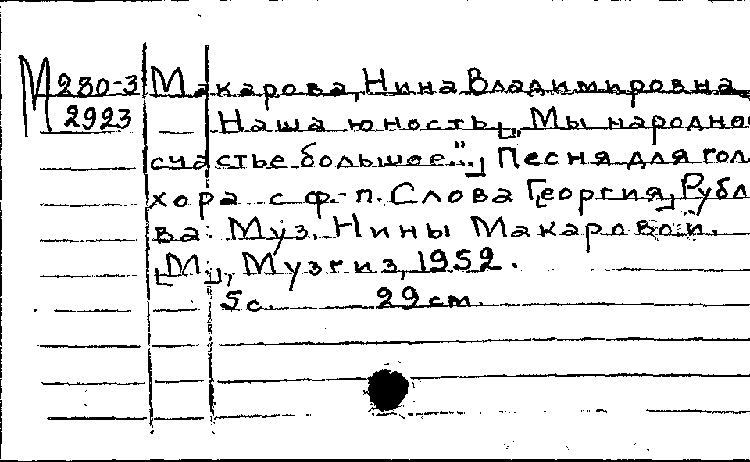 М 280-3 Макарова, Нина Владимировна.
2923 — Наша юность. [„Мы народное
счастье большое...”] Песня для гол
хора с ф.-п. Слова Г[еоргия] Рубл
ва. Муз. Нины Макаровой.
[М.], Музгиз, 1952.
5 с. 29 см.